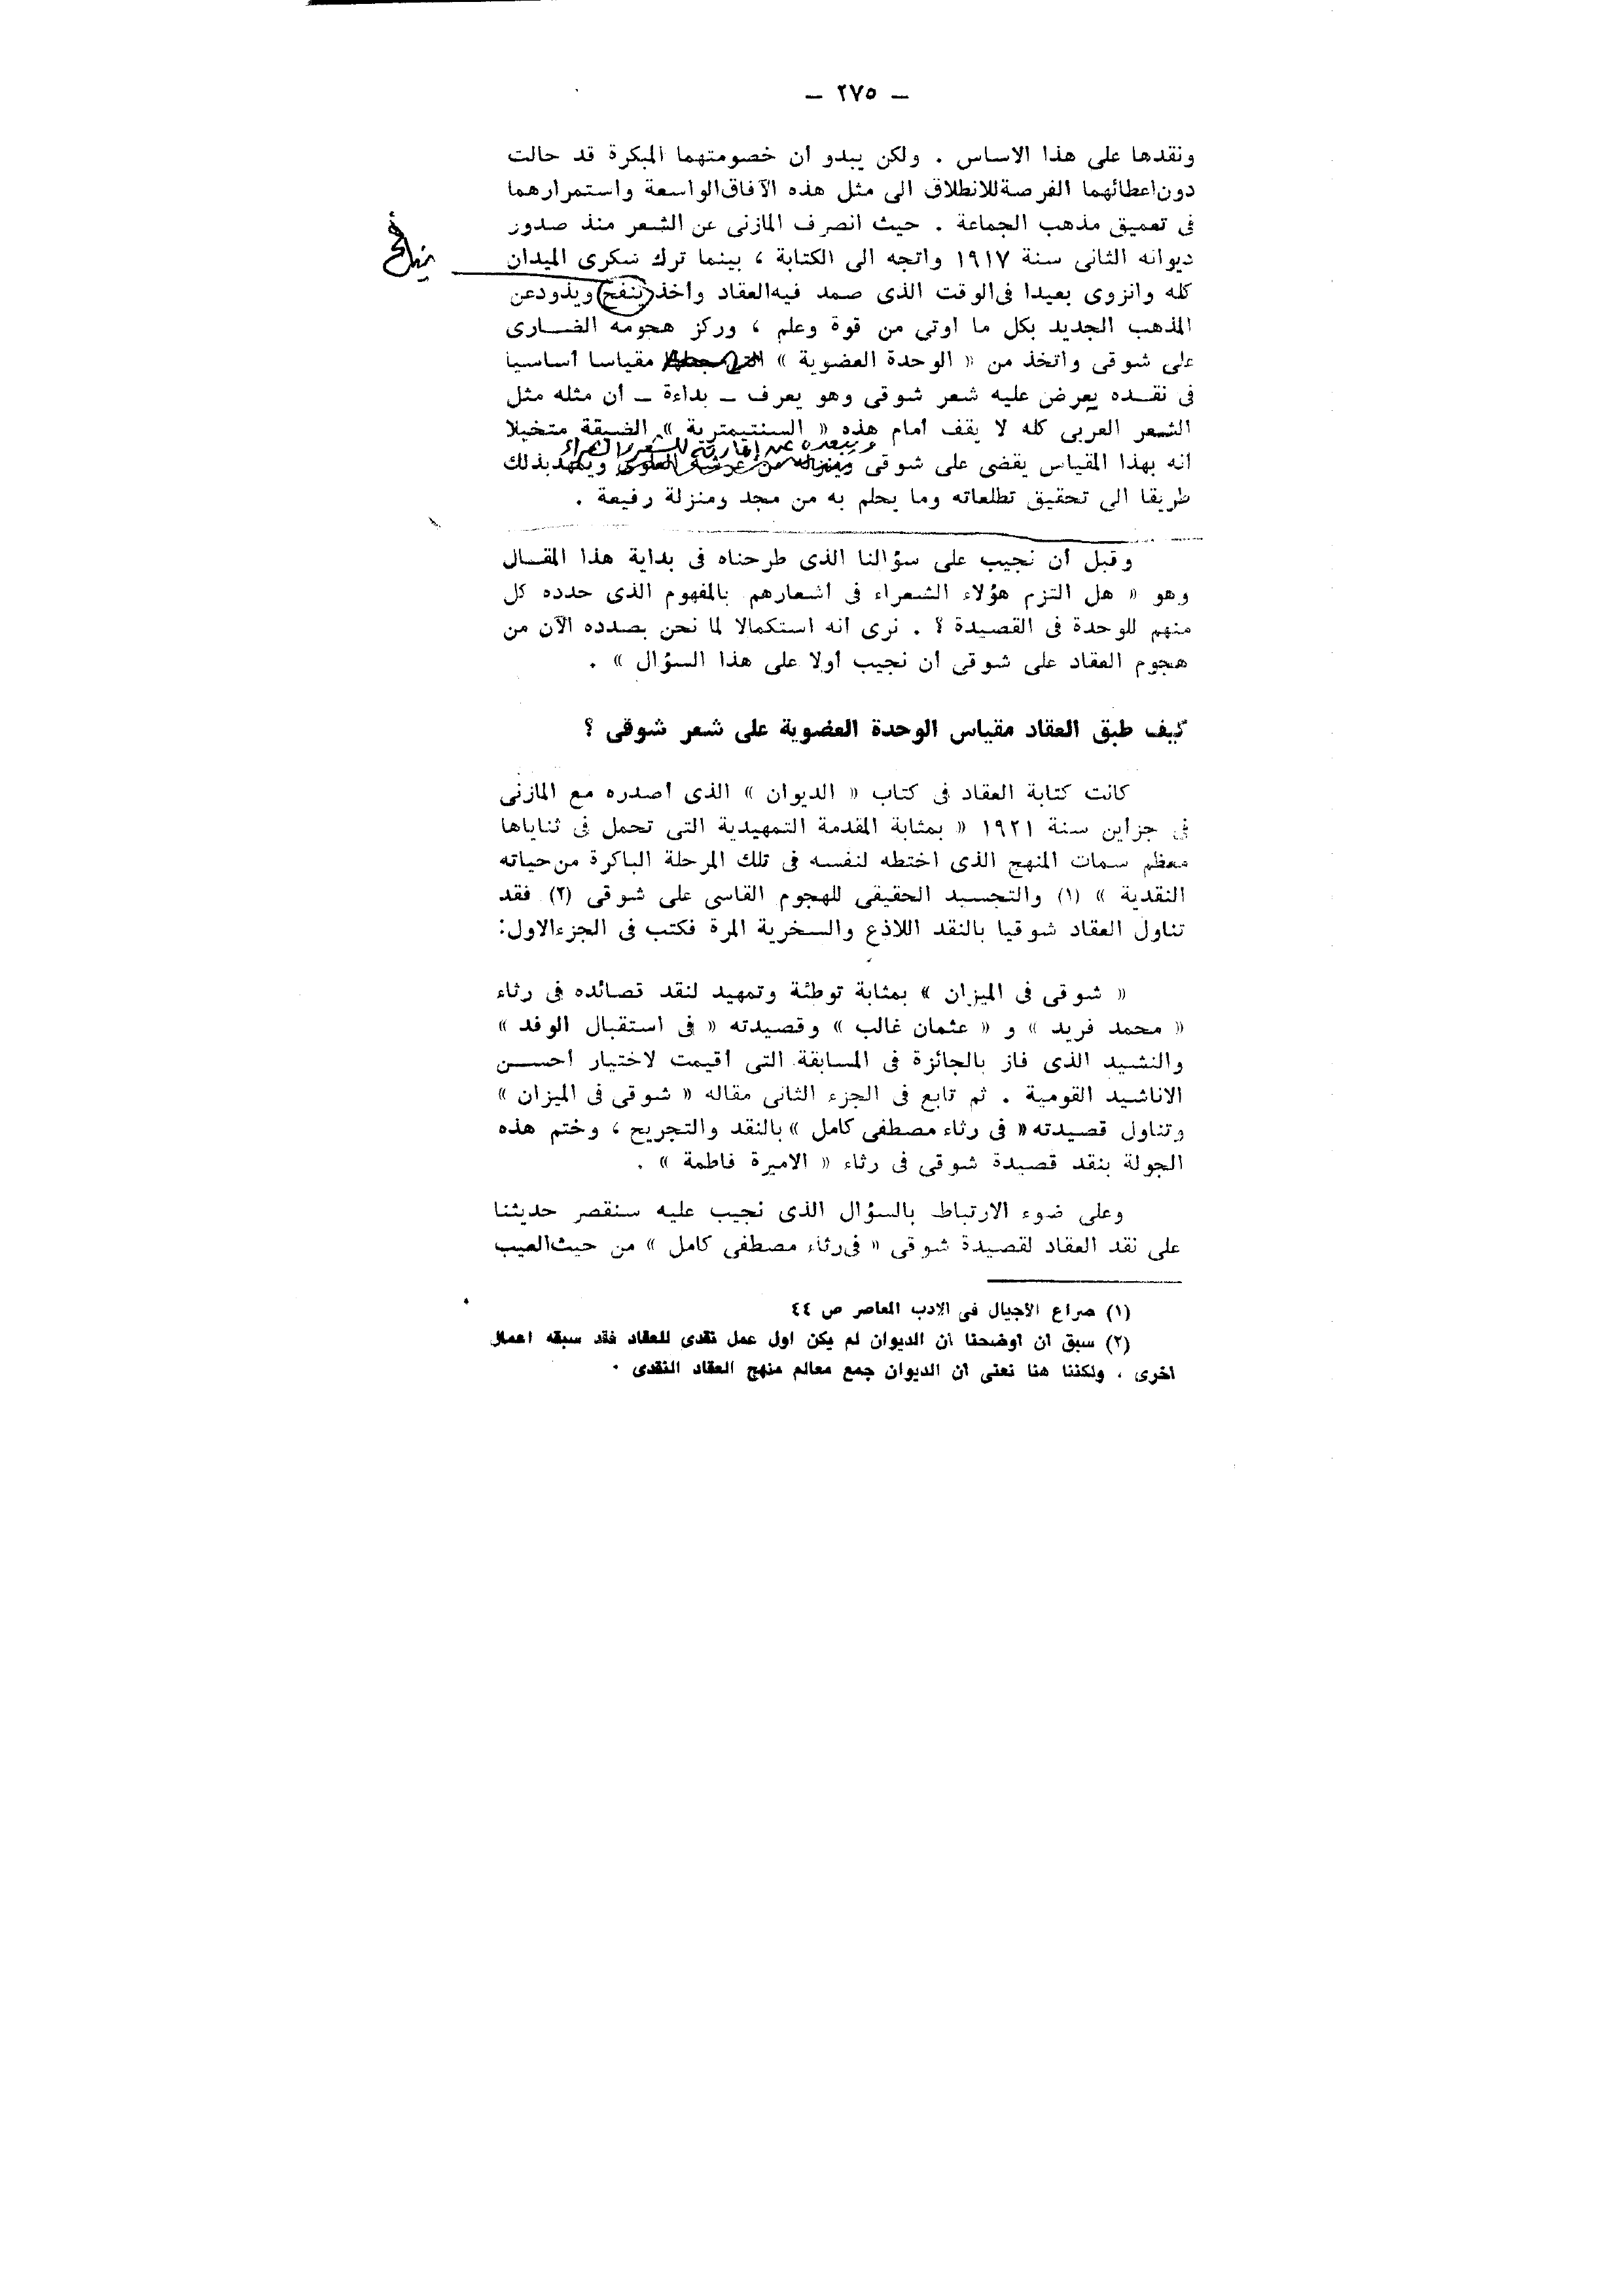 — ٢٧٥ —
ونقدها على هذا الاساس . ولكن يبدو أن خصومتهما المبكرة قد حالت
دون اعطائهما الفرصة للانطلاق الى مثل هذه الآفاق الواسعة واستمرارهما
فى تعميق مذهب الجماعة . حيث انصرف المازنى عن الشعر منذ صدور
ديوانه الثانى سنة ١٩١٧ واتجه الى الكتابة ، بينما ترك شكرى الميدان
كله وانزوى بعيدا فى الوقت الذى صمد فيه العقاد وأخذ ينفح ويذود عن
المذهب الجديد بكل ما أوتى من قوة وعلم ، وركز هجومه الضارى
على شوقى واتخذ من « الوحدة العضوية » مقياسا أساسيا
فى نقده يعرض عليه شعر شوقى وهو يعرف — بداءة — أن مثله مثل
الشعر العربى كله لا يقف أمام هذه « السنتيمترية » الضيقة متخيلا
ويبعده عن إمارته للشعر والشعراء
أنه بهذا المقياس يقضى على شوقى وينزله من عرشه العلوى ويمهد بذلك
طريقا الى تحقيق تطلعاته وما يحلم به من مجد ومنزلة رفيعة .
وقبل أن نجيب على سؤالنا الذى طرحناه فى بداية هذا المقال
وهو « هل التزم هؤلاء الشعراء فى أشعارهم بالمفهوم الذى حدده كل
منهم للوحدة فى القصيدة ؟ . نرى أنه استكمالا لما نحن بصدده الآن من
هجوم العقاد على شوقى أن نجيب أولا على هذا السؤال » .
كيف طبق العقاد مقياس الوحدة العضوية على شعر شوقى ؟
كانت كتابة العقاد فى كتاب « الديوان » الذى أصدره مع المازنى
فى جزأين سنة ١٩٢١ « بمثابة المقدمة التمهيدية التى تحمل فى ثناياها
معظم سمات المنهج الذى اختطه لنفسه فى تلك المرحلة الباكرة من حياته
النقدية » (١) والتجسيد الحقيقى للهجوم القاسى على شوقى (٢) فقد
تناول العقاد شوقيا بالنقد اللاذع والسخرية المرة فكتب فى الجزء الاول:
« شوقى فى الميزان » بمثابة توطئة وتمهيد لنقد قصائده فى رثاء
« محمد فريد » و « عثمان غالب » وقصيدته « فى استقبال الوفد »
والنشيد الذى فاز بالجائزة فى المسابقة التى أقيمت لاختيار أحسن
الاناشيد القومية . ثم تابع فى الجزء الثانى مقاله « شوقى فى الميزان »
وتناول قصيدته « فى رثاء مصطفى كامل » بالنقد والتجريح ، وختم هذه
الجولة بنقد قصيدة شوقى فى رثاء « الاميرة فاطمة » .
وعلى ضوء الارتباط بالسؤال الذى نجيب عليه سنقصر حديثنا
على نقد العقاد لقصيدة شوقى « فى رثاء مصطفى كامل » من حيث العيب
(١) صراع الأجيال فى الادب المعاصر ص ٤٤
(٢) سبق أن أوضحنا أن الديوان لم يكن أول عمل نقدى للعقاد فقد سبقه أعمال
أخرى ، ولكننا هنا نعنى أن الديوان جمع معالم منهج العقاد النقدى .